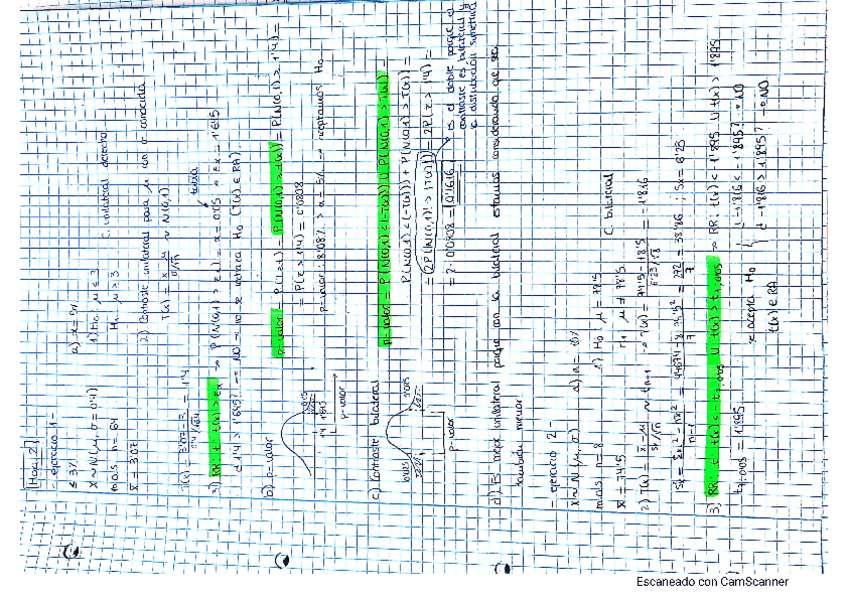 Hoja 2
- ejercicio 1 -
≤ 3%
X ~ N(μ, σ = 0'4)
m.a.s. n = 64
x̄ = 3'07
a) α = 5%
1) H₀: μ ≤ 3
H₁: μ > 3
C. unilateral derecho
2) Contraste unilateral para μ con σ conocida
T(x) = x̄ - μ / σ/√n ~ N(0,1)
T(x) = 3'07 - 3 / 0'4/√64 = 1'4
3) RR: t: t(x) > zα → P(N(0,1) > zα) = α = 0'05 → zα = 1'645
tabla
d 1'4 > 1'645? → NO → no se rechaza H₀ (T(x) ∈ RA)
b) p-valor
p-valor = P(Z > 1) = P(N(0,1) > T(x)) = P(N(0,1) > 1'4) =
= P(Z > 1'4) = 0'0808
p-valor: 8'08% > α = 5% → aceptamos H₀
1'4 1'645
p-valor
c) Contraste bilateral
p-valor = P(N(0,1) < (-T(x)) ∪ P(N(0,1) > T(x)) =
P(N(0,1) < (-T(x))) + P(N(0,1) > T(x)) =
= (2P(N(0,1) > |T(x)|)) = 2P(Z > 1'4) =
= 2 · 0'0808 = 0'1616
es el doble porque el
contraste es bilateral y
la distribución simétrica
0'025
0'025
p-valor
d) Es mejor unilateral porque con la bilateral estamos considerando que sea
también menor
- ejercicio 2 -
X ~ N(μ, σ)
m.a.s. n = 8
x̄ = 74'5
a) α = 10%
1) H₀: μ = 78'5
H₁: μ ≠ 78'5
C. bilateral
2) T(x) = x̄ - μ / s/√n ~ tn-1 → T(x) = 74'5 - 78'5 / 6'23/√8 = -1'816
= 272 / 7 = 38'86 ; Sx = 6'23
3) RR: t: t(x) < -t7,0'05 ∪ t(x) > t7,0'05 → RR: t(x) < -1'895 ∪ t(x) > 1'895
t7,0'05 = 1'895
x acepta H₀
t(x) ∈ RA
d -1'816 < -1'895? → NO
d -1'816 > 1'895? → NO
Escaneado con CamScanner